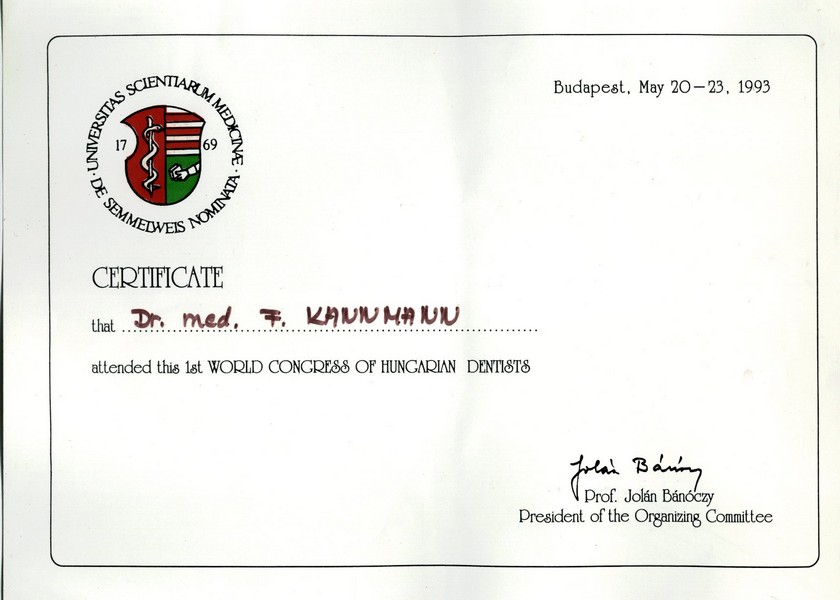 UNIVERSITAS SCIENTIARUM MEDICINÆ
DE SEMMELWEIS NOMINATA
17 69
Budapest, May 20–23, 1993
CERTIFICATE
that Dr. med. F. KANNMANN
attended this 1st WORLD CONGRESS OF HUNGARIAN DENTISTS
Jolán Bánóczy
Prof. Jolán Bánóczy
President of the Organizing Committee